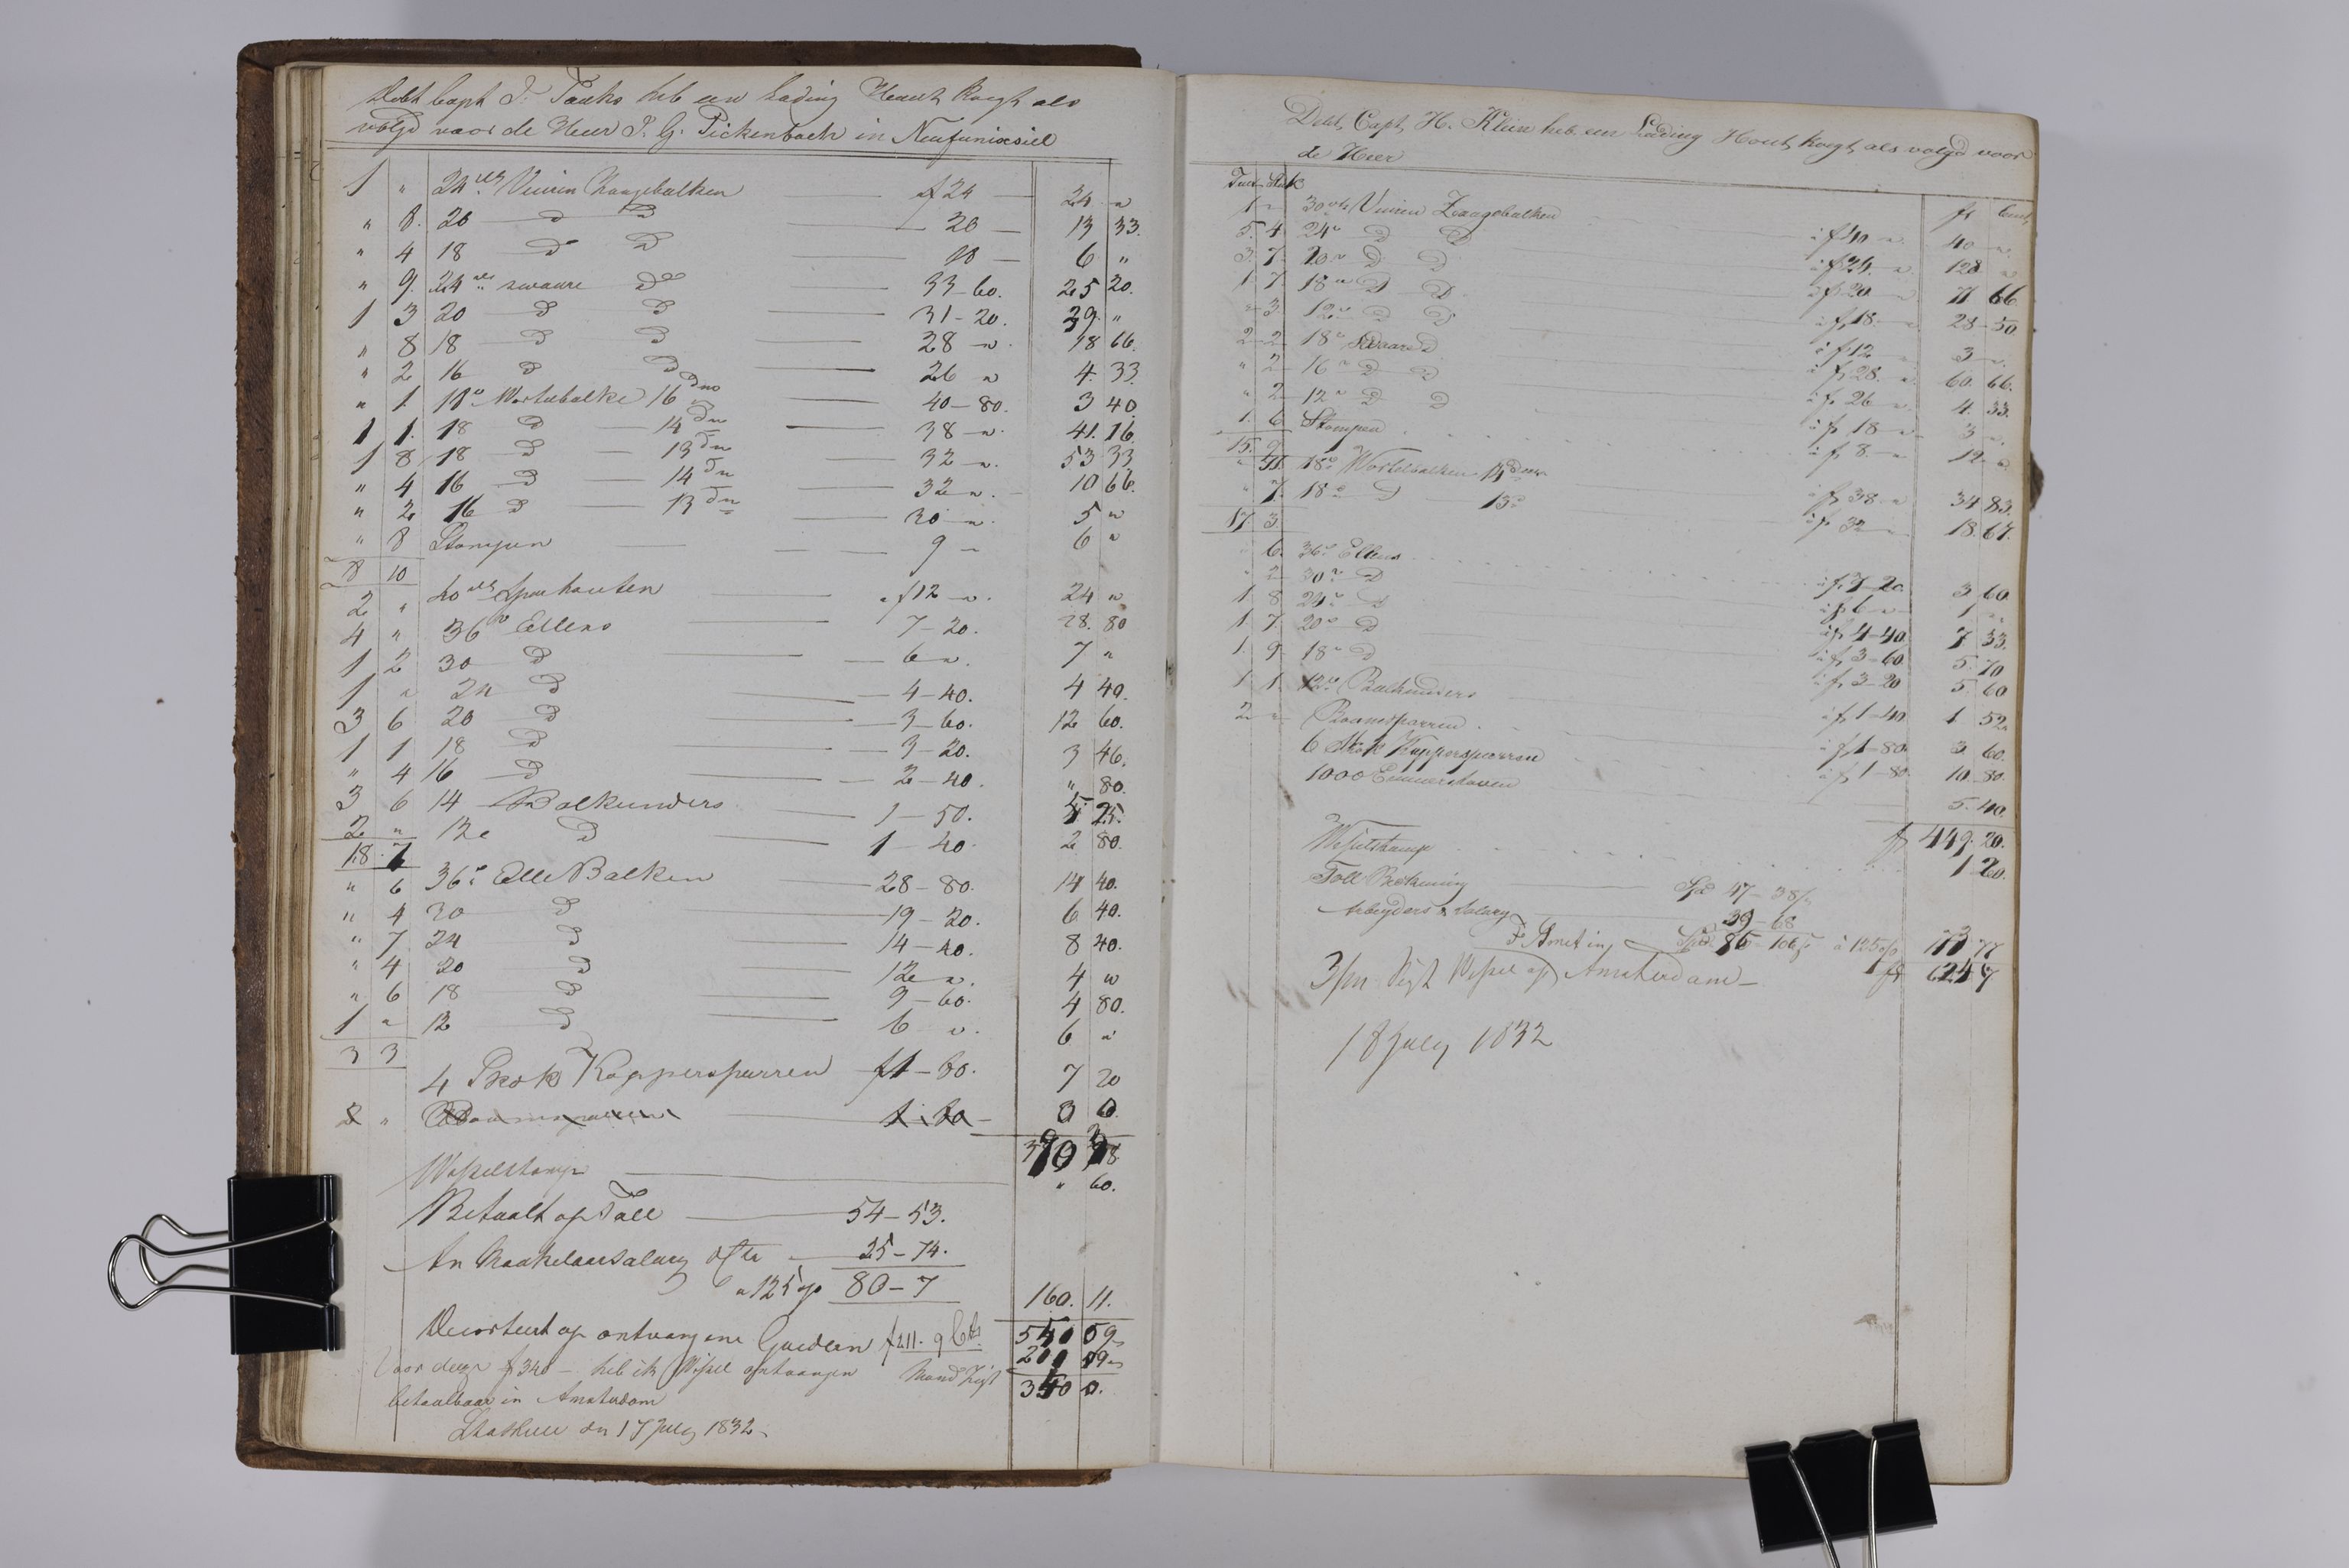 Debt Capt J. Tauks heb een Lading Houth kogt als
volgd voor de Heer P. G. Pickenbach in Neufunixsiel
1 " 24 Vuiren Zaagebalken f 24 24 "
" 8. 20 D D 20 13 33.
" 4 18 D D 18 6 "
" 9. 24 swaare D 33-60. 25 20.
1 3 20 D D 31-20. 39. "
" 8 18 D D 28 " 18 66.
" 2 16 D D 26 " 4. 33.
" 1. 18 Wortelbalke 16 40-80. 3 40.
1 1. 18 D 14 38 " 41. 16.
1 8 18 D 13 32 " 53 33
" 4 16 D 14 32 " 10 66.
" 2 16 D 13 30 " 5 "
" 8 Stompen 9 - 6 "
8 10
2 " 40 Spanhouten f12 " 24 "
4 " 36 Ellens 7-20. 28. 80
1 2 30 D 6 " 7 "
1 " 24 D 4-40. 4 40.
3 6 20 D 3-60. 12 60.
1 1 18 D 3-20. 3 46.
" 4 16 D 2-40. " 80.
3 6 14 Balkunders 1-50. 5 25.
2 " 12 D 1-40. 2 80.
18. 7
" 6 36 Elle Balken 28-80. 14 40.
" 4 30 D 19-20. 6 40.
" 7 24 D 14-40. 8 40.
" 4 20 D 12 " 4 "
" 6 18 D 9-60. 4 80.
1 " 12 D 6 " 6 "
3 3
4 Skok Kappersparren f1-80. 7 20
2 "
Wisselstamp " 60.
Betaalt op Toll 54-53.
An Maakelaarsalary 25-74.
a 125 80-7 160. 11.
Decorteert op ontvangene Gueldern f211. 9 Cts 540 59
Voor deeze f340 - heb ik Wissel ontvangen Mond Zigt 340 0.
betaalbaar in Amsterdam
den 17 July 1832
Debt, Capt, H. Klein heb een Lading Hout, kogt, als volgd voor
de Heer
f Cents
1 " 30 Vuiren Zaagebalken à f 40 " 40 "
5. 4. 24 D D à f 24 " 128 "
3. 7. 20 D D à f 20 " 71 66
1. 7. 18 D D à f 18 " 28-50.
" 3. 12 D D à f 12 " 3 "
2 2. 18 Swaare D à f 28 " 60. 66.
" 2 16 D D à f 26 " 4. 33.
" 2 12 D D à f 18 " 3 "
1. 6. Stompen à f 8 " 12 "
15. 9.
" 11. 18 Wortelbalken 14 à f 38 " 34 83.
" 7. 18 D 13 à f 32 " 18. 67.
17 3.
" 6. 36 Ellens à f 7-20 3 60
" 2 30 D à f 6 " 1 "
1 8 24 D à f 4-40 7 33.
1. 7. 20 D à f 3-60 5. 70
1. 9. 18 D à f 3-20 5. 60
1 1. 12 Balkunders à f 1-40 1 52
2 " Boomsparren à f 1-80 3. 60.
6 Skok Kappersparren à f 1-80 10. 80.
1000 Emmerstaven 5. 40.
f 449. 20.
Wisselstamp 1 20.
Toll Rechening Spd 47-38
Arbeyders & Salary 39-68
Spd. 86-106 à 125
3/m Zigt Wissel op Amsterdam
18 July 1832